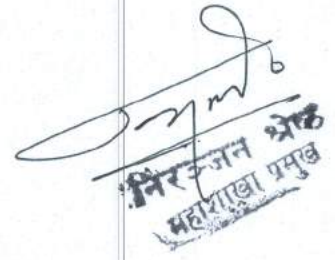 निरञ्जन श्रेष्ठ
महाशाखा प्रमुख